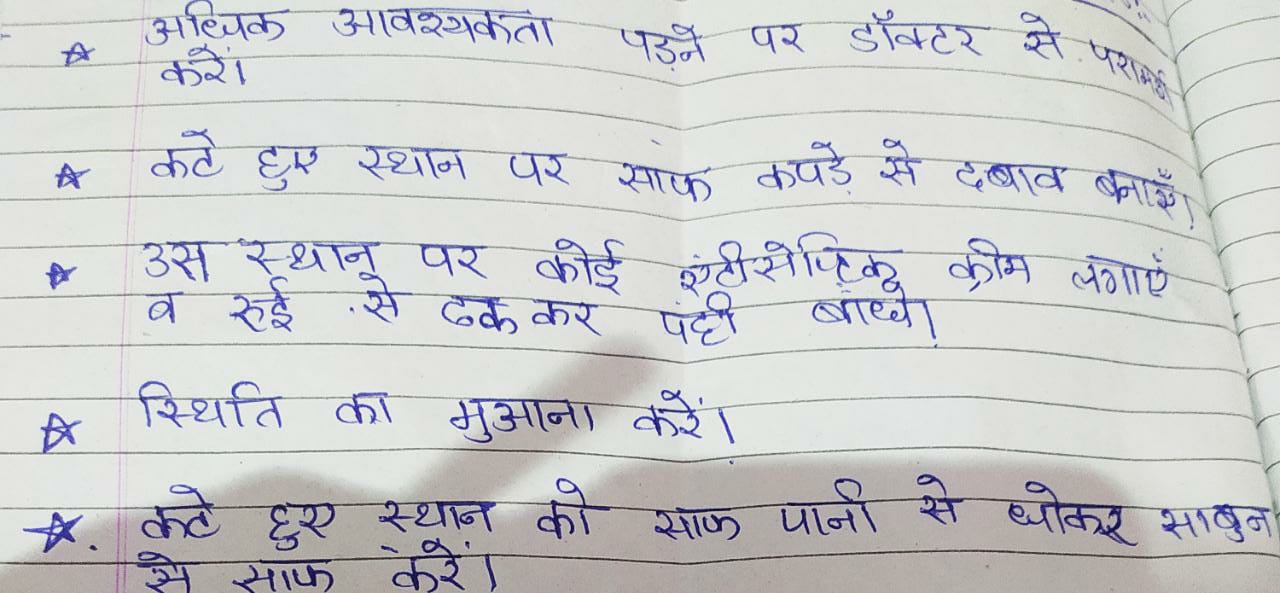 ☆ अधिक आवश्यकता पड़ने पर डॉक्टर से परामर्श
करें।
☆ कटे हुए स्थान पर साफ कपड़े से दबाव बनाएँ।
☆ उस स्थान पर कोई एंटीसेप्टिक क्रीम लगाएं
व रुई से ढककर पट्टी बांधे।
☆ स्थिति का मुआना करें।
☆. कटे हुए स्थान को साफ पानी से धोकर साबुन
से साफ करें।